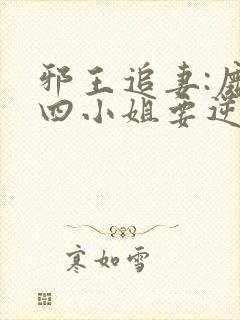 邪王追妻:
四小姐要逆
寒如雪